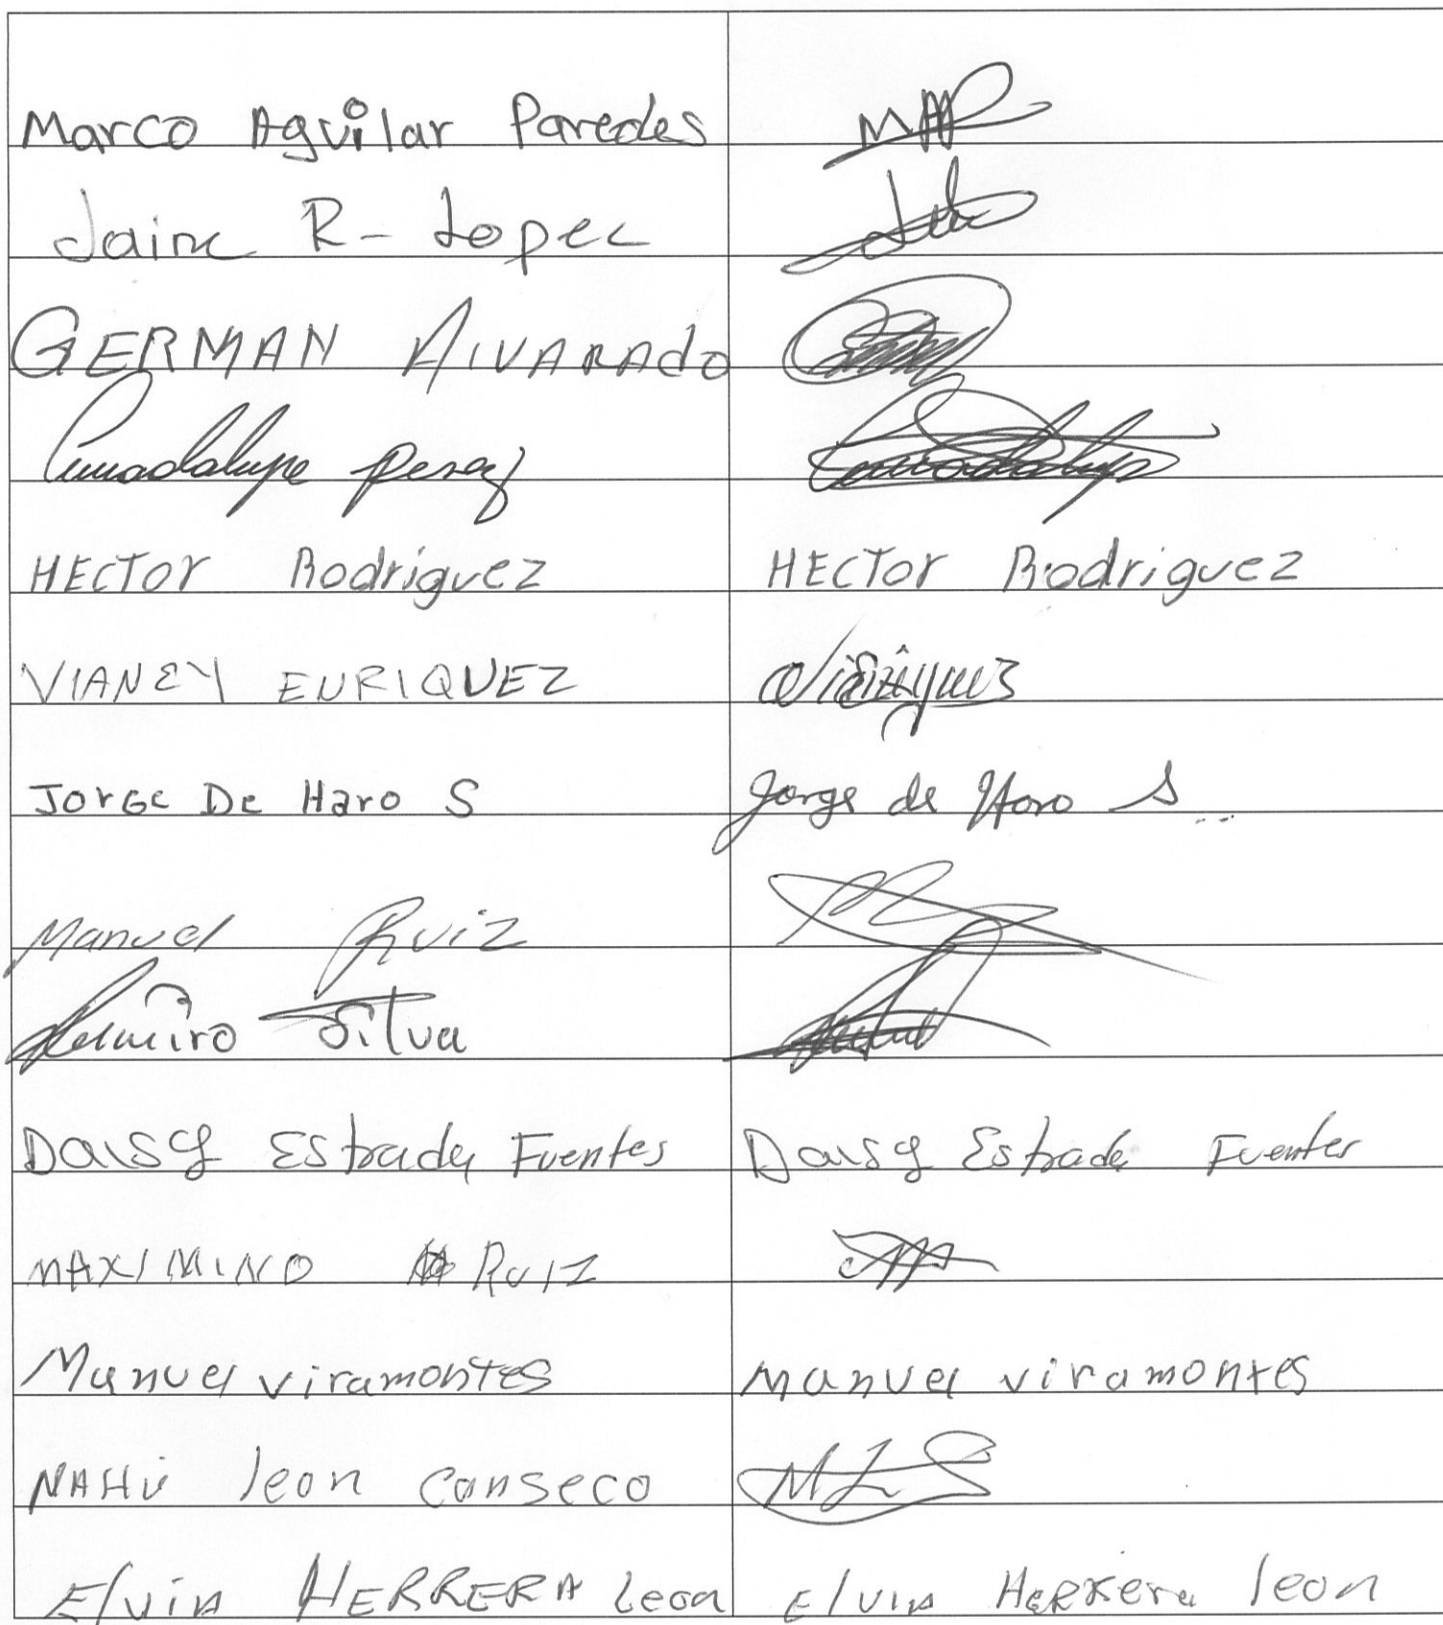 Marco Aguilar Paredes MAP
Jaime R- Lopez
GERMAN AlVARAdo
Guadalupe perez Guadalupe
HECTOR Rodriguez HECTOR Rodriguez
VIANEY ENRIQUEZ
JORGE De Haro S Jorge de Haro S
Manuel Ruiz
Ramiro Silva
Daisy Estrada Fuentes Daisy Estrada Fuentes
MAXIMINO RUIZ
Manuel viramontes Manuel viramontes
NAHU leon canseco
Elvia HERRERA leon Elvia HERRERA leon